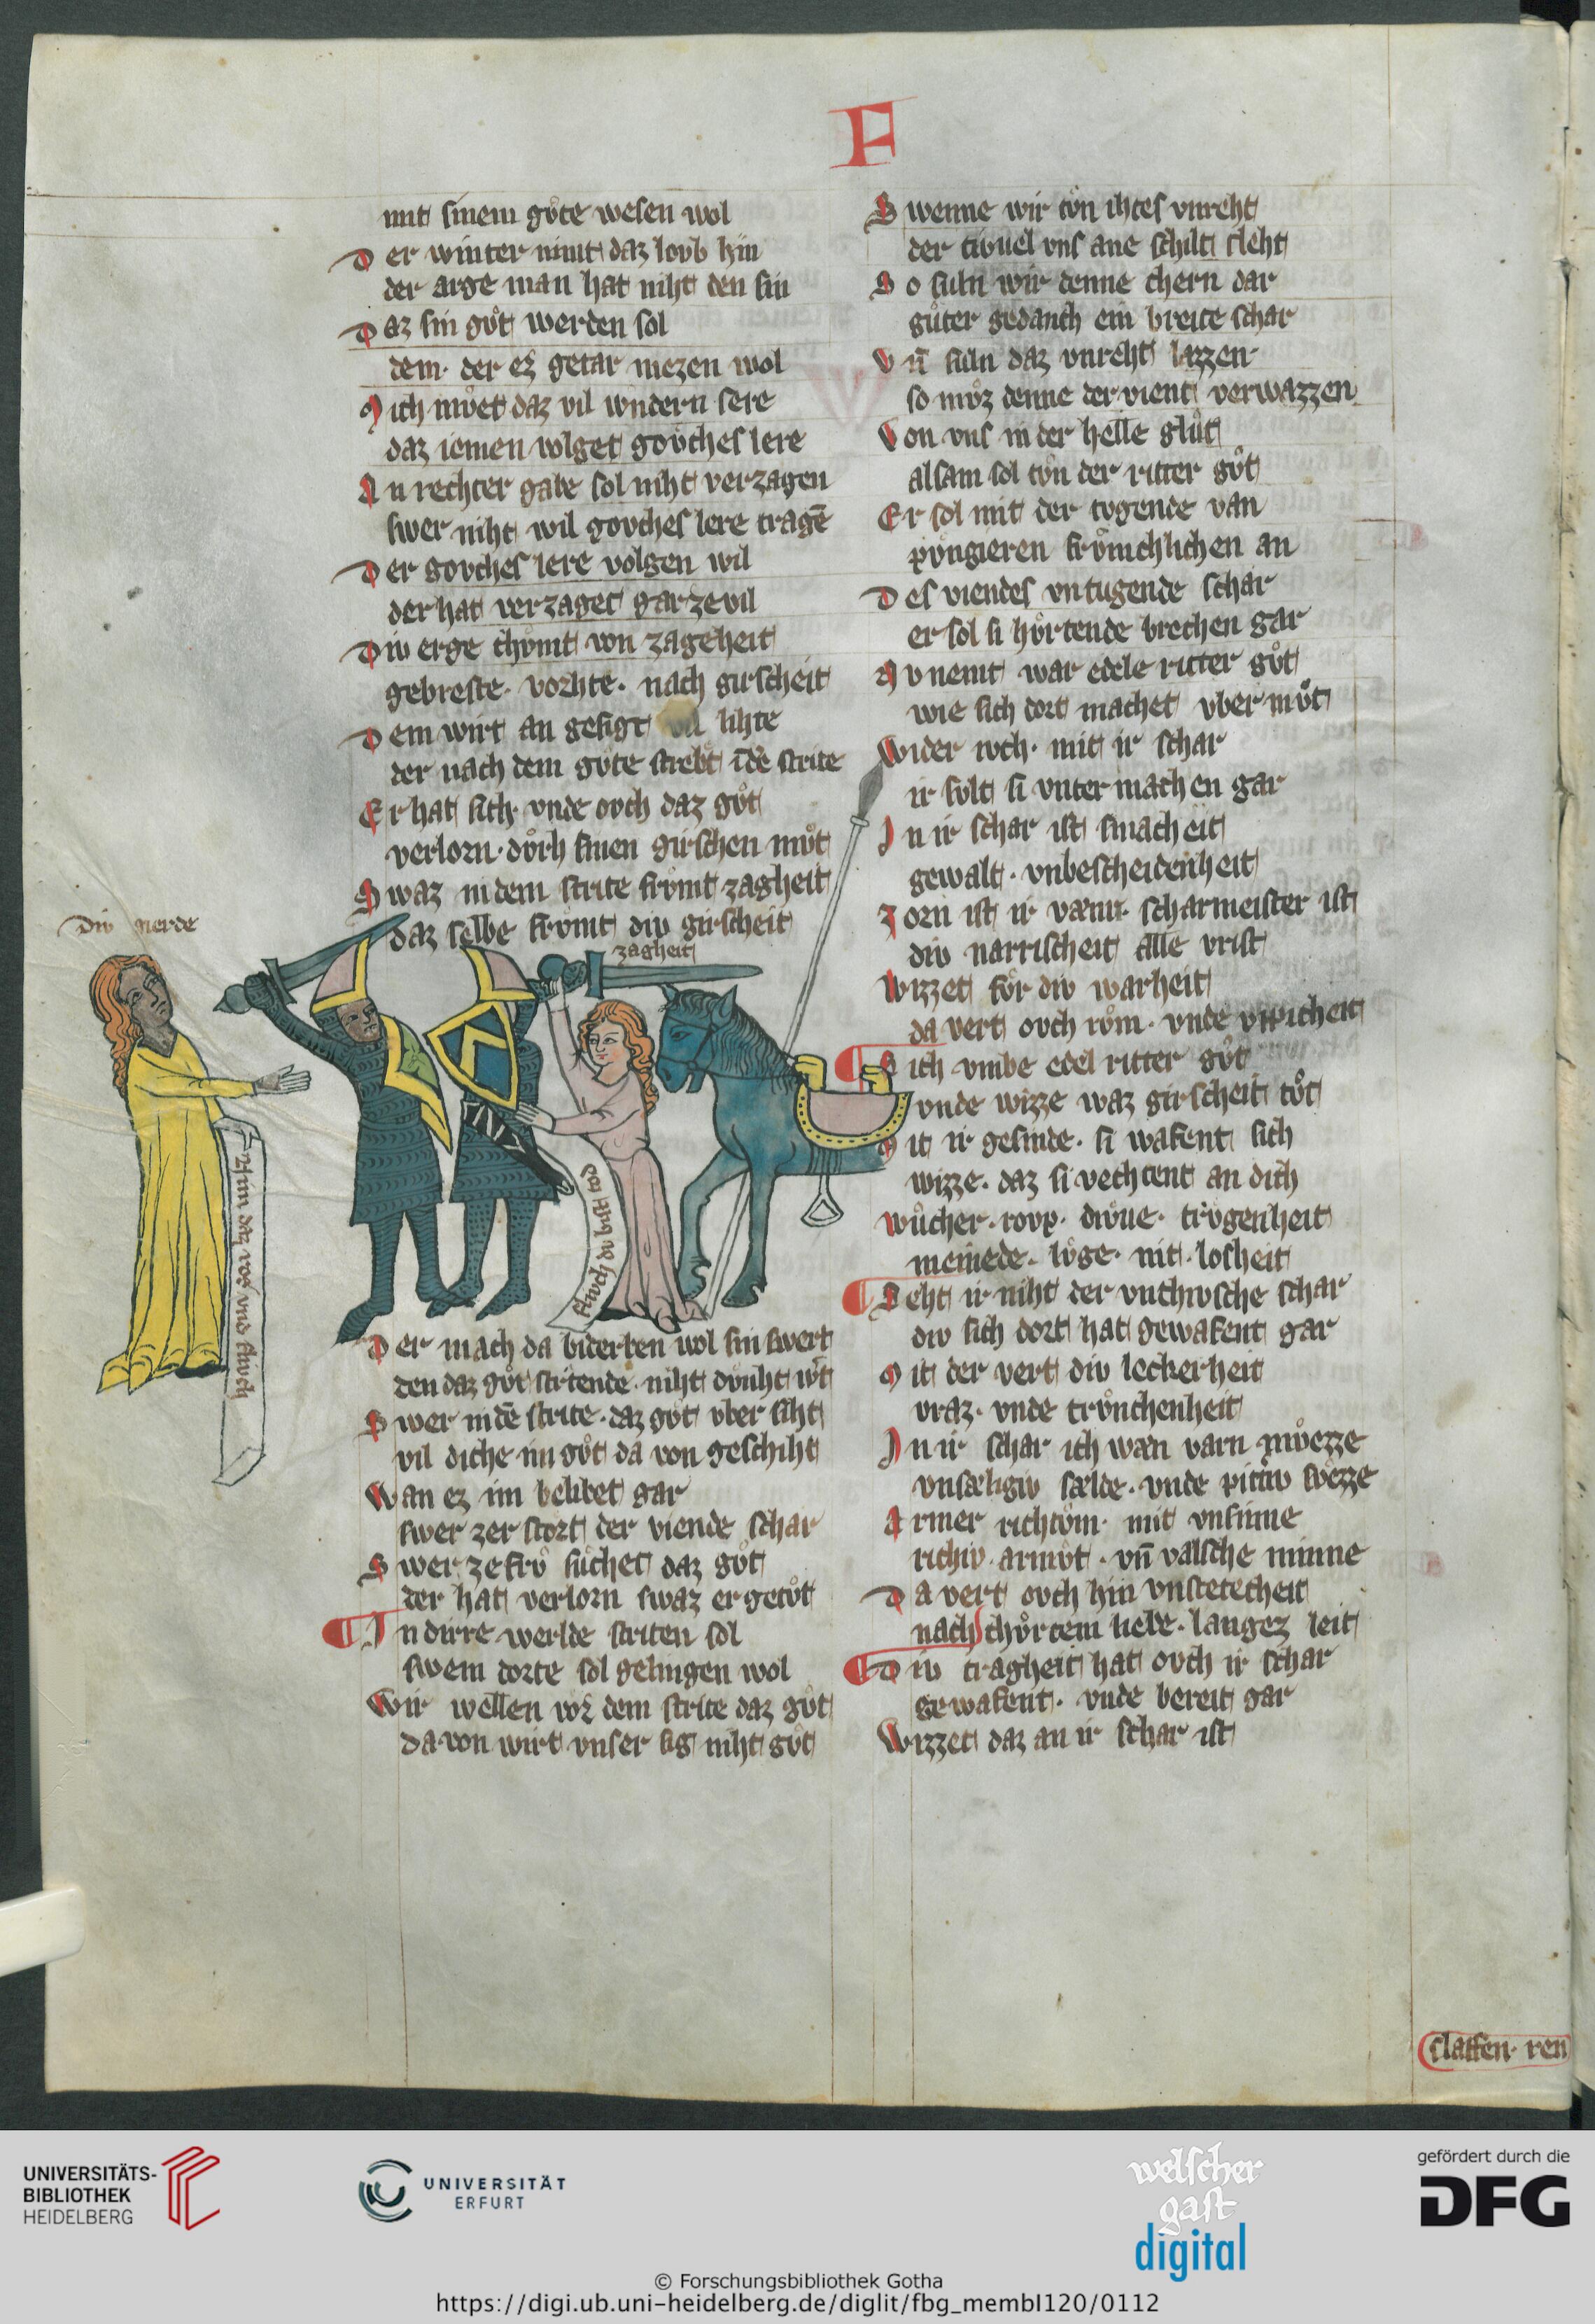 F
mit sinem gůte wesen wol
Der winter nimt daz lovb hin
der arge man hat niht den sin
Daz sin gůt werden sol
dem· der ez getar niezen wol
Mich mv̊et daz vil wndern sere
daz iemen volget govches lere
An rechter gabe sol niht verzagen
swer niht wil govches lere tragē
Der govches lere volgen wil
der hat verzaget gar ze vil
Div erge chvmt von zageheit
gebreste· vorhte· nach girscheit
Dem wirt an gesigt vil lihte
der nach dem gůte strebt īdē strite
Er hat sich· vnde ovch daz gůt
verlorn· dvrh sinen girschen můt
Swaz in dem strite frvmt zagheit
daz selbe frvmt div girscheit
div gierde
zagheit
Nim daz ros vnd flivch
flivch dv bist tod
Der mach da biderben wol sin swert
den daz gůt stritende· niht dvnht wert
Swer in dē strite· daz gůt vber siht
vil diche im gůt da von geschiht
Wan ez im belibet gar
swer zer stort der viende schar
Swer ze frv̊ sůchet daz gůt
der hat verlorn swaz er getůt
In dirre werlde striten sol
swem dorte sol gelingen wol
Wir wellen vor dem strite daz gůt
da von wirt vnser sig niht gůt
Swenne wir tůn ihtes vnreht
der tivuel vns ane schilt sleht
So suln wir denne chern dar
gůter gedanch ein breite schar
Vn̄ suln daz vnreht lazzen·
so můz denne der vient verwazzen
Von vns in der helle glůt
alsam sol tůn der ritter gůt
Er sol mit der tvgende van
pvngieren frvmchlichen an
Des viendes vntugende schar
er sol si hvrtende brechen gar
Nv nemt war edele ritter gůt
wie sich dort machet vbermůt
Wider ivch· mit ir schar
ir svlt si vnter machen gar
In ir schar ist smacheit
gewalt· vnbescheidenheit
Zorn ist ir vænir scharmeister ist
div narrischeit alle vrist
Wizzet fvr div warheit
da vert ovch rům· vnde vppicheit
Sich vmbe edel ritter gůt
vnde wizze waz girscheit tůt
Mit ir gesinde· si wafent sich
wizze· daz si vechtent an dich
Wůcher· rovp· divue· trvgenheit
meinede· lvge· nit· losheit
Seht ir niht der vnchvsche schar
div sich dort hat gewafent gar
Mit der vert div leckerheit
vraz· vnde trvnchenheit
In ir schar ich wæn varn mv̊ezze
vnsæligiv sælde· vnde pittriv svezze
Armer richtům· mit vnsinne
richiv armůt· vn̄ valsche minne
Da vert ovch hin vnstetecheit
nach chvrcem liebe· langez leit
Div tragheit hat ovch ir schar
gewafent· vnde bereit gar
Wizzet daz an ir schar ist
slaffen· ren
UNIVERSITÄTS-
BIBLIOTHEK
HEIDELBERG
UNIVERSITÄT
ERFURT
welscher
gast
digital
gefördert durch die
DFG
© Forschungsbibliothek Gotha
https://digi.ub.uni-heidelberg.de/diglit/fbg_membI120/0112